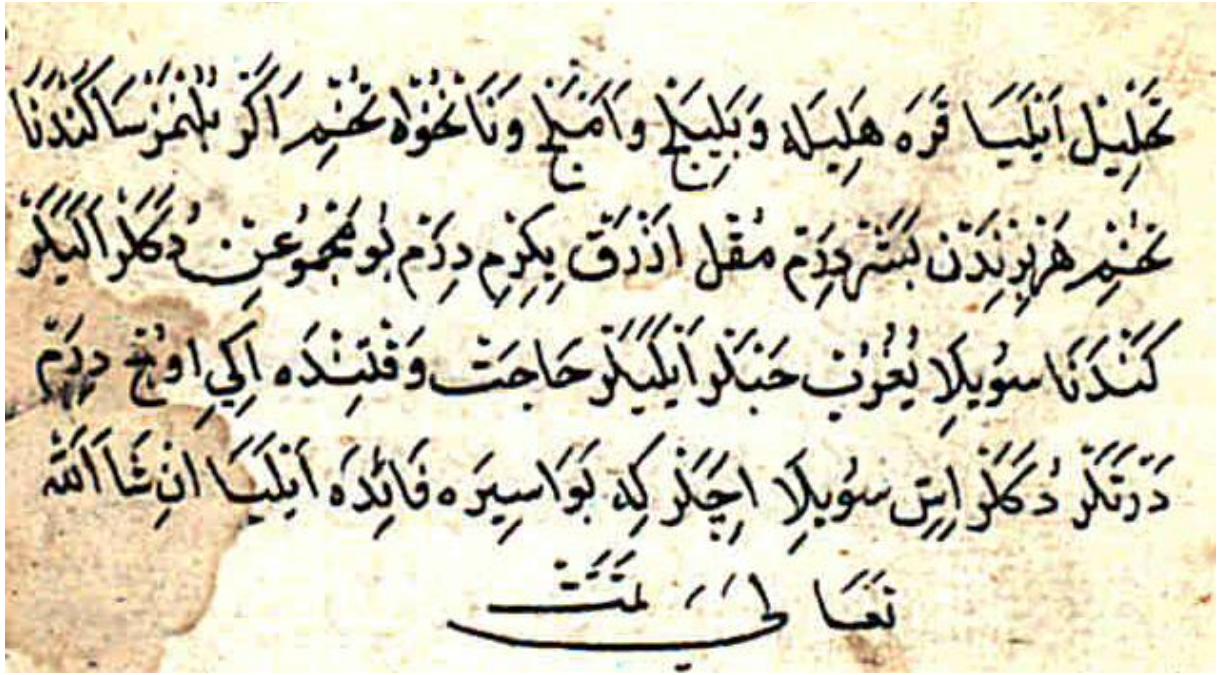 تَحْلِيْل اَيْلَيَا قَرَه هَلِيلَه وَبَلِيلَجْ وَاَمْلَجْ وَنَانْخُوَاه تُخْمِ اَكَرْ بُلْنْمَزْسَا كَنْدَنَا
تُخْمِ هَرْبِرِنْدَنْ بَشَرْ دِرَمْ مُقْل اَزْرَقْ يِكِرْمِ دِرَمْ بُو مَجْمُوعِنْ دُكَلَرْ اَلَيَلَرْ
كَنْدَنَا سُويِلَا يُغُرُبْ حَبْلَرْ اَيْلَيَلَرْ حَاجَتْ وَقْتِنْدَه اِكِي اوُچْ دِرَمْ
دَرْتَلَرْ دُكَلَرْ اِسِّ سُويِلَا اِچَلَرْ كِه بَوَاسِيرَه فَائِدَه اَيْلَيَا اِنْ شَا اَللّه
تَعَالَى تَمَّتْ